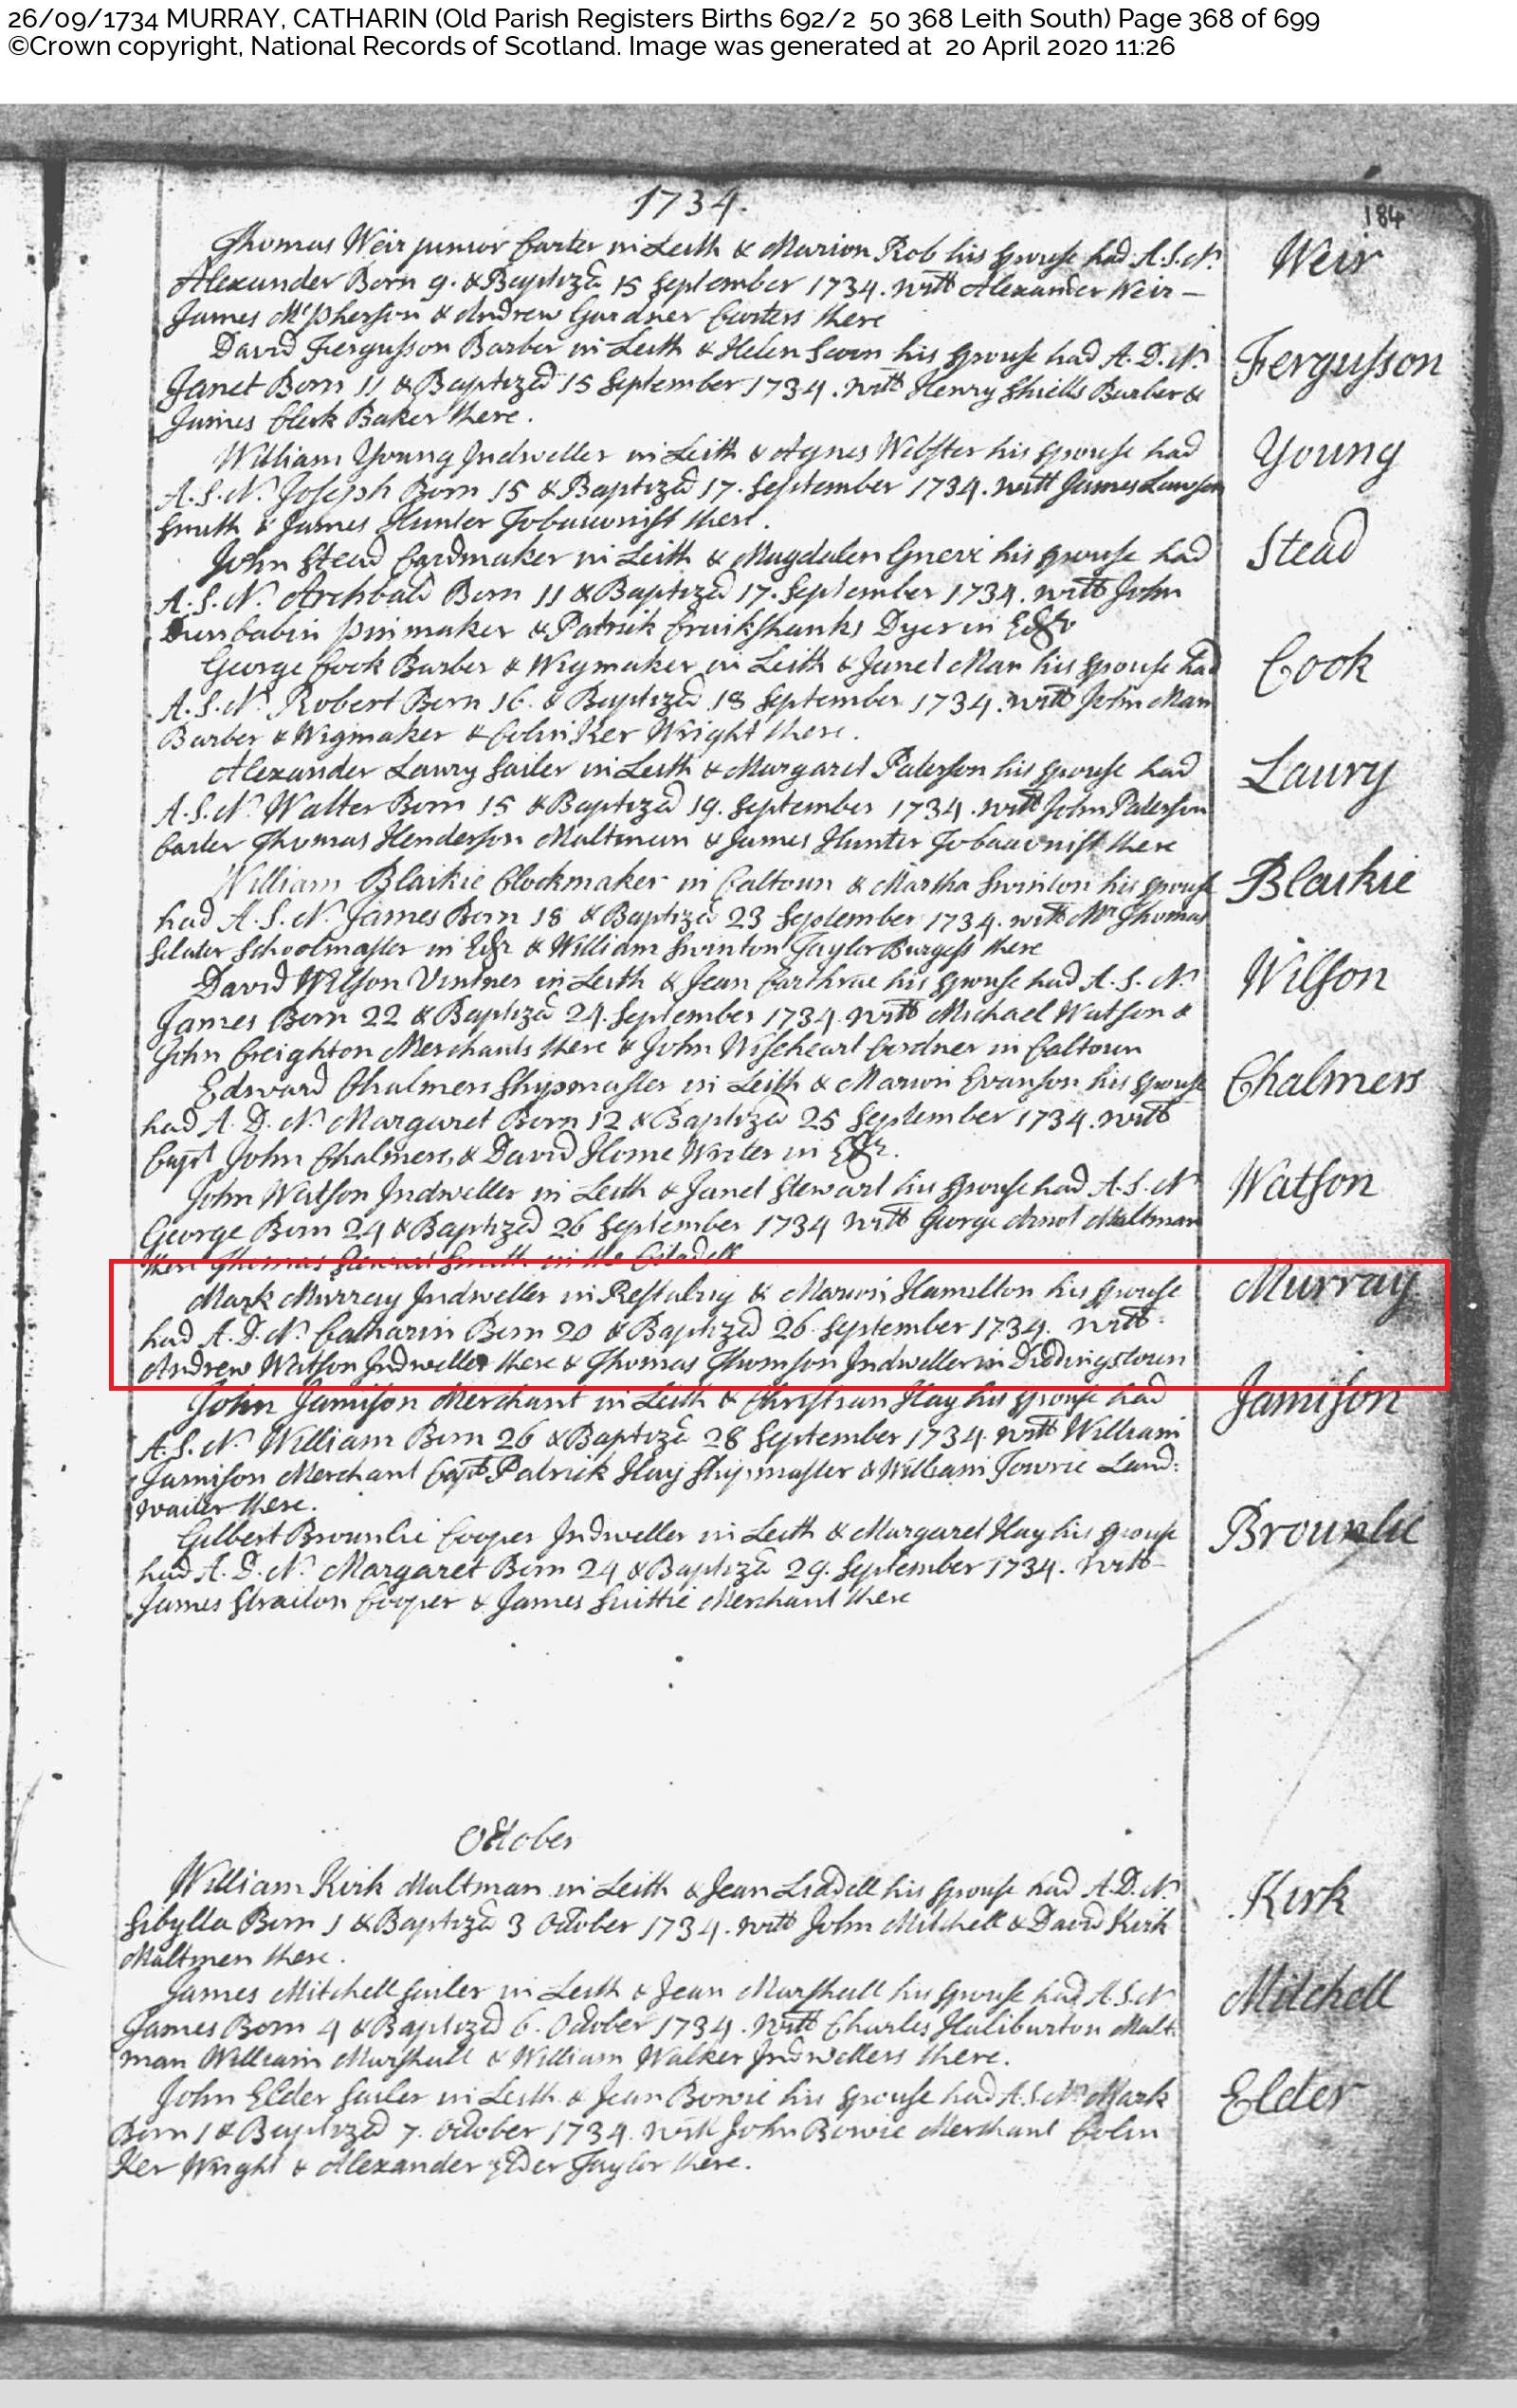 26/09/1734 MURRAY, CATHARIN (Old Parish Registers Births 692/2 50 368 Leith South) Page 368 of 699
©Crown copyright, National Records of Scotland. Image was generated at 20 April 2020 11:26
1734.
184
Thomas Weir junior Carter in Leith & Marion Rob his spouse had A.S.N. Weir
Alexander Born 9. & Baptized 15 September 1734. witt Alexander Weir –
James McPherson & Andrew Gardner Carters there
David Fergusson Barber in Leith & Helen his spouse had A.D.N. Fergusson
Janet Born 11 & Baptized 15 September 1734. witt Henry Shiells Barber &
James Clerk Baker there.
William Young Indweller in Leith & Agnes Webster his spouse had Young
A.S.N. Joseph Born 15 & Baptized 17. September 1734. witt James Lawson
Smith & James Hunter Tobacconist there.
John Stead Cardmaker in Leith & Magdalen his spouse had Stead
A.S.N. Archbald Born 11 & Baptized 17. September 1734. witt John
Dunbabin pinmaker & Patrick Cruikshanks Dyer in Edr
George Cook Barber & Wigmaker in Leith & Janet Man his spouse had Cook
A.S.N. Robert Born 16. & Baptized 18 September 1734. witt John Man
Barber & Wigmaker & Colin Ker Wright there.
Alexander Laury Sailer in Leith & Margaret Paterson his spouse had Laury
A.S.N. Walter Born 15 & Baptized 19. September 1734. witt John Paterson
Carter Thomas Henderson Maltman & James Hunter Tobacconist there
William Blaikie Clockmaker in Caltoun & Martha Swinton his spouse Blaikie
had A.S.N. James Born 18 & Baptized 23 September 1734. witt Mr Thomas
Sclater Schoolmaster in Edr & William Swinton Taylor Burgess there
David Wilson Vintner in Leith & Jean Carthrae his spouse had A.S.N. Wilson
James Born 22 & Baptized 24. September 1734. witt Michael Watson &
John Creighton Merchants there & John Wiseheart Gardner in Caltoun
Edward Chalmers Shipmaster in Leith & Marion Evanson his spouse Chalmers
had A.D.N. Margaret Born 12 & Baptized 25 September 1734. witt
Capt John Chalmers, & David Home Writer in Edr.
John Watson Indweller in Leith & Janet Stewart his spouse had A.S.N Watson
George Born 24 & Baptized 26 September 1734 witt George Arnot Maltman
there Thomas Stewart Smith in the Citadell
Mark Murray Indweller in Restalrig & Marion Hamilton his spouse Murray
had A.D.N. Catharin Born 20 & Baptized 26. September 1734. witt
Andrew Watson Indweller there & Thomas Thomson Indweller in Duddingstoun
John Jamison Merchant in Leith & Christian Hay his spouse had Jamison
A.S.N. William Born 26 & Baptized 28 September 1734. witt William
Jamison Merchant Capt Patrick Hay Shipmaster & William Towrie Land:
waiter there.
Gilbert Brounlie Cooper Indweller in Leith & Margaret Hay his spouse Brounlie
had A.D.N. Margaret Born 24 & Baptized 29. September 1734. witt
James Straiton Cooper & James Smittie Merchant there
October
William Kirk Maltman in Leith & Jean Liddell his spouse had A.D.N. Kirk
Sibylla Born 1 & Baptized 3 October 1734. witt John Mitchell & David Kirk
Maltmen there.
James Mitchell Sailer in Leith & Jean Marshall his spouse had A.S.N Mitchell
James Born 4 & Baptized 6. October 1734. witt Charles Haliburton Malt:
man William Marshall & William Walker Indwellers there.
John Elder Sailer in Leith & Jean Bowie his spouse had A.S.N. Mark Elder
Born 1 & Baptized 7. October 1734. witt John Bowie Merchant Colin
Ker Wright & Alexander Elder Taylor there.